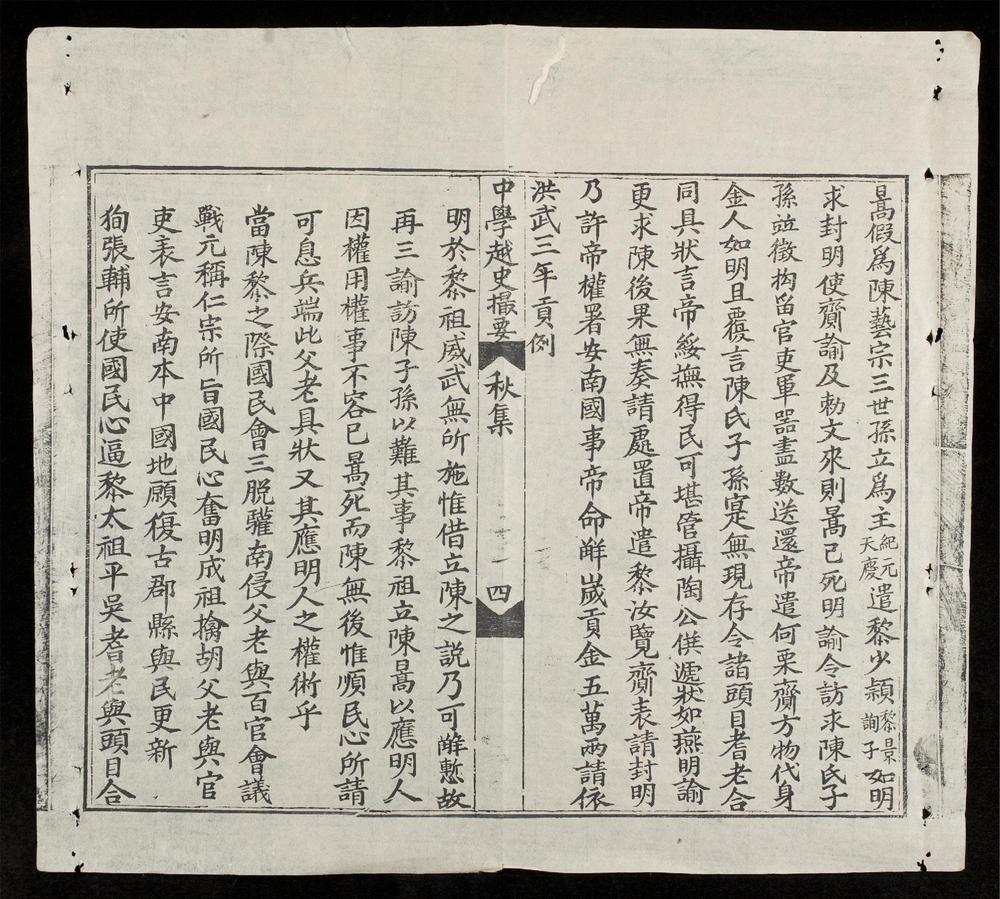 暠假爲陳藝宗三世孫立爲主紀元天慶遣黎少穎黎景詢子如明
求封明使齎諭及勅文來則暠已死明諭令訪求陳氏子
孫並徵拘留官吏軍器盡數送還帝遣何栗齎方物代身
金人如明且覆言陳氏子孫寔無現存令諸頭目耆老合
同具狀言帝綏撫得民可堪管攝陶公供遞狀如燕明諭
更求陳後果無奏請處置帝遣黎汝覽齎表請封明
乃許帝權署安南國事帝命觧歲貢金五萬兩請依
洪武三年貢例
中學越史撮要 秋集 四
明於黎祖威武無所施惟借立陳之説乃可觧慙故
再三諭訪陳子孫以難其事黎祖立陳暠以應明人
因權用權事不容已暠死而陳無後惟順民心所請
可息兵端此父老具狀又其應明人之權術乎
當陳黎之際國民會三脫驩南侵父老與百官會議
戰元稱仁宗所旨國民心奮明成祖擒胡父老與官
吏表言安南本中國地願復古郡縣與民更新
狥張輔所使國民心逼黎太祖平吳耆老與頭目合